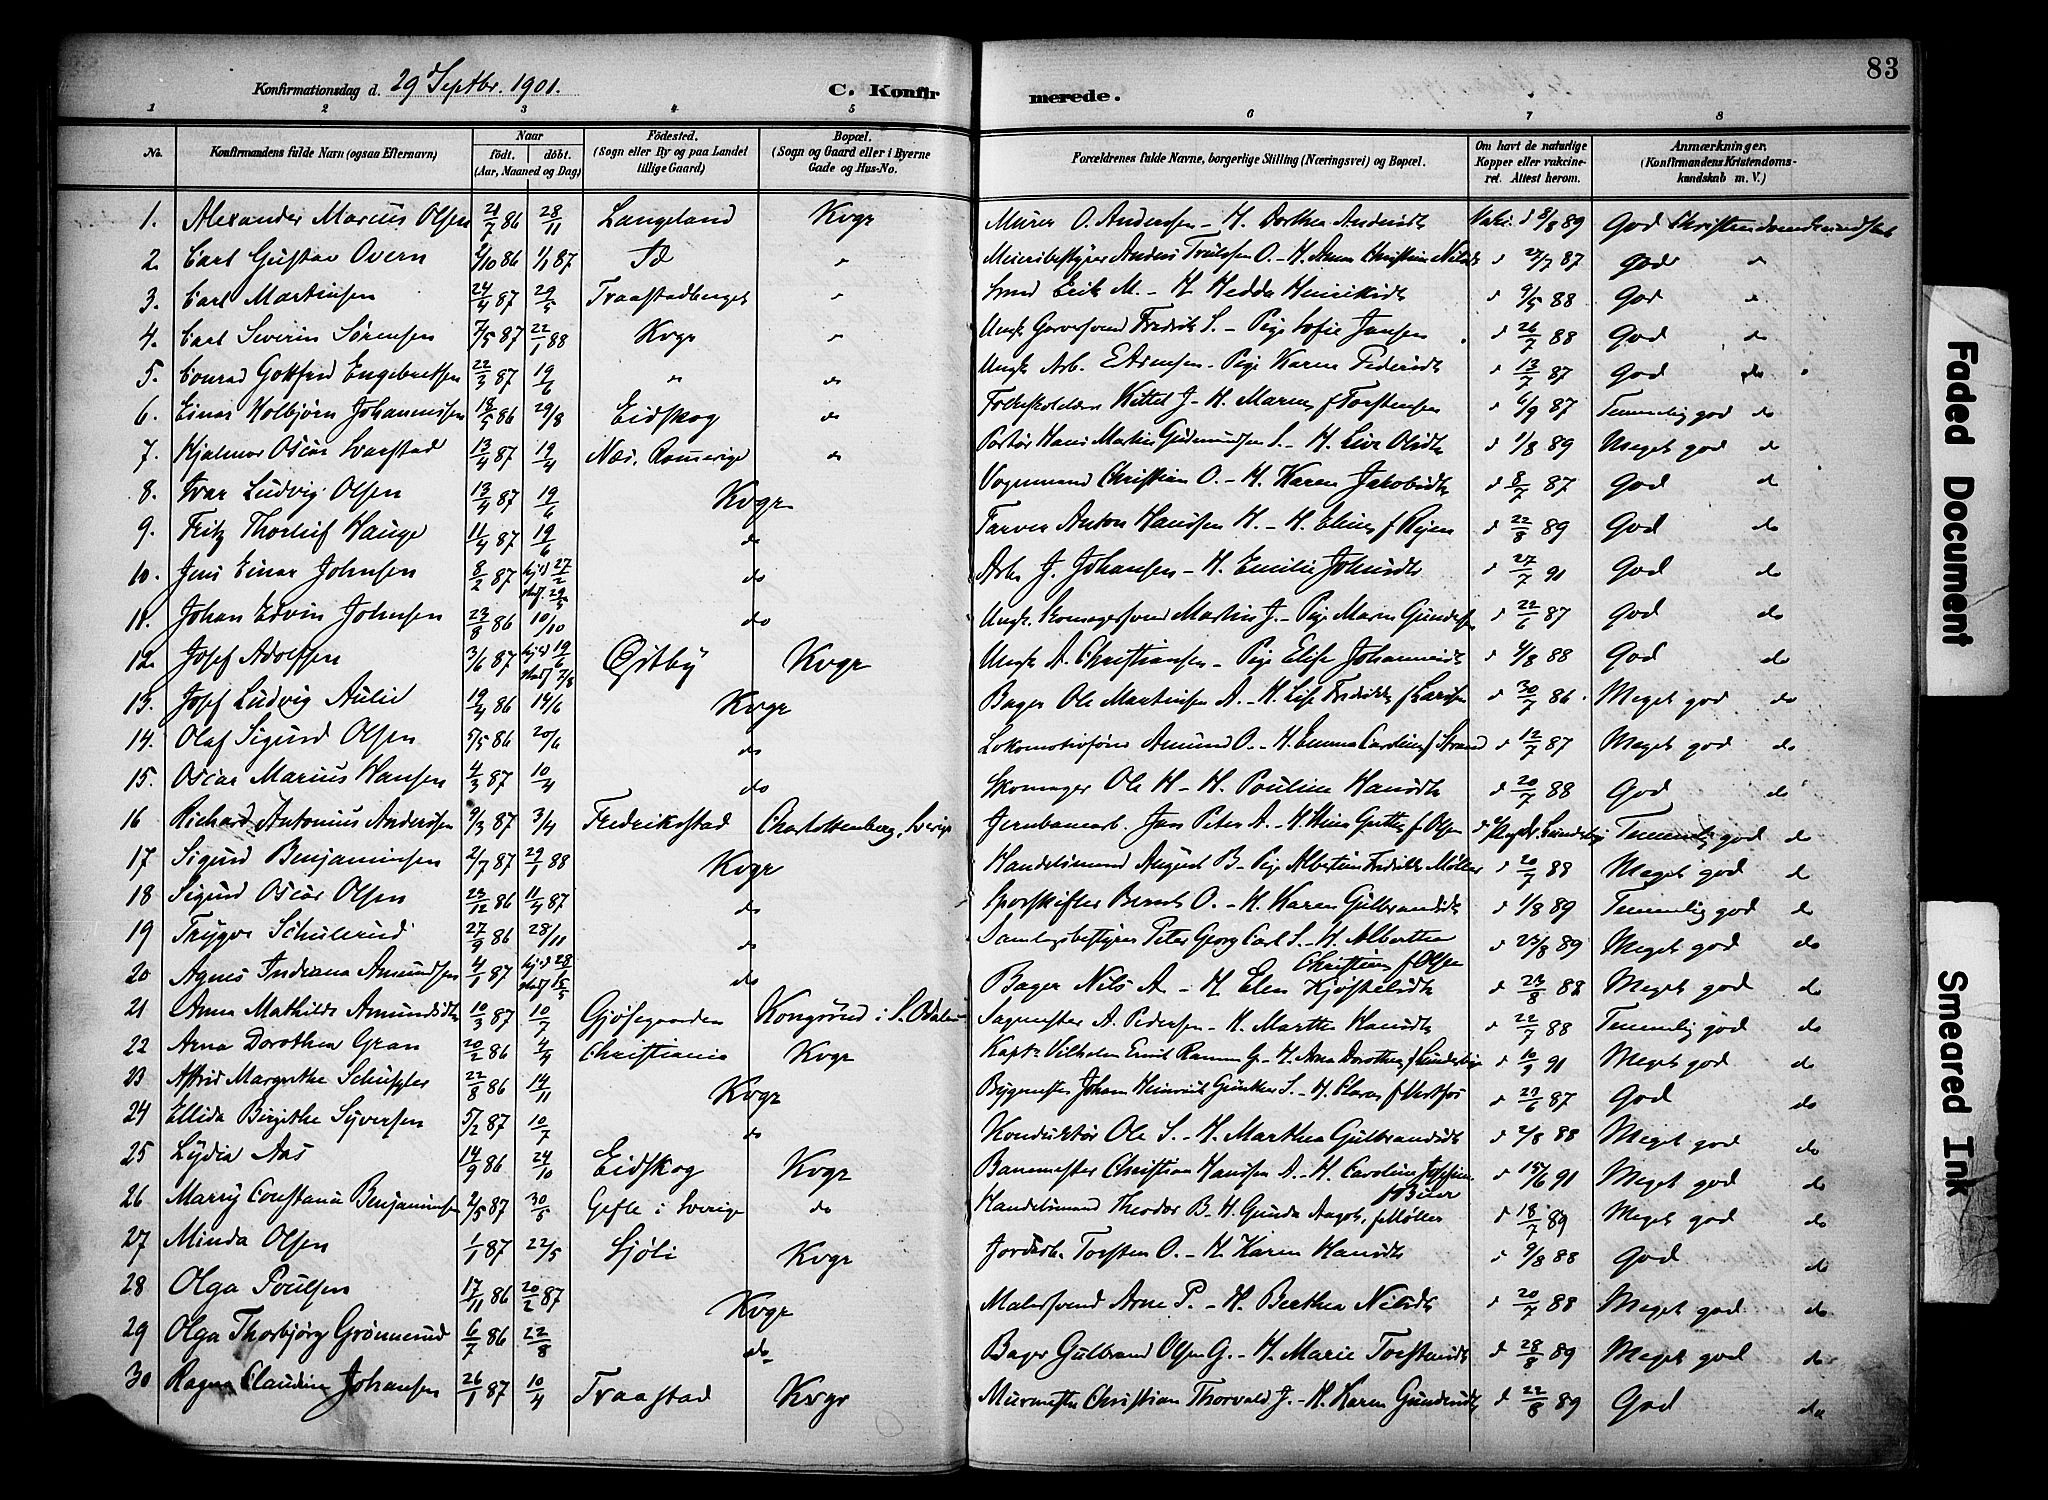 83
Konfirmationsdag d. 29d Septbr. 1901.
C. Konfirmerede.
1 2 3 4 5 6 7 8
No.
Konfirmandens fulde Navn (ogsaa Efternavn)
Naar
født. døbt.
(Aar, Maaned og Dag)
Fødested.
(Sogn eller By og paa Landet
tillige Gaard)
Bopæl.
(Sogn og Gaard eller i Byerne
Gade og Hus-No.
Forældrenes fulde Navne, borgerlige Stilling (Næringsvei) og Bopæl.
Om havt de naturlige
Kopper eller vakcine-
ret. Attest herom.
Anmærkninger.
(Konfirmandens Kristendoms-
kundskab m. V.)
1. Alexander Marius Olsen 21/7 86 28/11 Langeland Kvgr Murer O. Andersen - H. Dorthea Andersdt Vakc. d 8/8 89 God Christendomskundskab
2. Carl Gustav Overn 2/10 86 1/1 87 Meieribestyrer Anders O. - H. Anna Christine Nilsdt d 27/7 87 God
3. Carl Martinsen 24/4 87 29/5 Traastadberget Smed Erik M. - H Hedda Henriksdt d 9/5 88 God
4. Carl Severin Sørensen 7/5 87 22/1 88 Kvgr Ungk. Garversvend Fredrik S. - Pige Sofie Jansen d 26/7 88 God
5. Conrad Gottfred Engebretsen 22/3 87 19/6 do Ungk. Arb. - Pige Karen Pedersdt d 13/7 87 God do
6. Einar Kolbjørn Johannessen 18/5 86 29/8 Eidskog do Kittel J - H. Maren f Torstensen d 6/9 87 Temmelig god do
7. Hjalmar Oscar Svarstad 13/4 87 19/4 Næs, Romerige do Portør Hans Martin Gudmundsen S. - H. Live Olsdt d 1/8 89 Meget god do
8. Ivar Ludvig Olsen 13/4 87 19/6 Kvgr Vognmand Christian O. - H. Karen Jakobsdt d 8/7 87 God do
9. Fritz Thorleif Hauge 11/4 87 19/6 do Farver Anton Hanssen H. - H. Eline f Ryen d 22/8 89 God do
10. Jens Einar Johnsen 8/2 87 hjd 27/2 stadf. 29/5 do Arb. J. Johansen - H. Emilie Johnsdt d 27/7 91 God do
11. Johan Edvin Johnsen 23/8 86 10/10 do Ungk. Skomagersvend Martin J. - Pige Maren Gundersen d 22/6 87 God do
12. Josef Adolfsen 3/6 87 hjd 19/6 stadf 7/8 Østby Kvgr Ungk A. Christiansen - Pige Elise Johannesdt d 4/8 88 God do
13. Josef Ludvig Aulie 19/4 86 14/6 Kvgr Bager Ole Martinsen A. - H. Lise Fredrikke f Larsen d 30/7 86. Meget god do
14. Olaf Sigurd Olsen 5/5 86 20/6 do Lokomotivfører Amund O. - H. Emma Caroline f Strand d 12/7 87 Meget god do
15. Oscar Marius Hansen 4/3 87 10/4 do Skomager Ole H - H. Pauline Hansdt d 20/7 88 God do
16 Richard Antonius Andersen 9/3 87 3/4 Fredrikstad Charlottenberg, Sverige Jernbanearb. Jens Peter A. - f Olsen Temmelig god do
17 Sigurd Benjaminsen 2/7 87 29/1 88 Kvgr Handelsmand August B - Pige Albertine Fredrikke Møller d 20/7 88 Meget god do
18 Sigurd Oscar Olsen 23/12 86 11/4 87 do Sporskifter Bernt O. - H. Karen Gulbrandsdt d 1/8 89 Temmelig god do
19 Trygve Schulerud 27/9 86 28/11 do Samlagsbestyrer Peter Georg Carl S. - H. Alberthea
Christine f Olsen d 23/8 89 Meget god do
20 Agnes Indiana Amundsen 4/1 87 hjd 28/ stadf 15/5 do Bager Nils A - H Elen Kjøstelsdt d 23/8 88 Meget god do
21 Anna Mathilde Amundsdt 10/3 87 10/7 Gjøsegaarden Kongsrud i S. Odalen Sagmester A. Pedersen - H. Marthea Hansdt d 22/7 88 Temmelig god do
22 Arna Dorothea Gran 20/2 86 4/4 Christiania Kvgr Kapt. Vilhelm Emil Ramm G. - H. Arna Dorothea f Lundebye d 10/9 91 Meget god do
23 Astrid Margrethe Schüssler 22/8 86 14/11 Kvgr Bygmester Johan Heinrich Günther S. - H. Clara f Vestfos d 23/6 87 God do
24 Ellida Birgithe Syversen 5/2 87 10/7 do Konduktør Ole S. - H. Marthea Gulbrandsdt d 2/8 88 Meget god do
25 Lydia Aas 14/9 86 24/10 Eidskog Kvgr Banemester Christian Hanssen A. - H. Caroline Josefine
f Biler d 15/6 91 Meget god do
26 Marry Constance Benjaminsen 2/5 87 30/5 Gefle i Sverige do Handelsmand Theodor B - H. Gunda Aagot, f Møller d 18/7 89 Meget god do
27 Minda Olsen 1/1 87 22/5 Sjøli Kvgr Jordarb. Torsten O. - H. Karen Hansdt d 9/8 88 God do
28 Olga Poulsen 17/11 86 20/2 87 Kvgr Malersvend Arne P. - H. Berthea Nilsdt d 20/7 88 Meget god do
29 Olga Thorbjørg Grønnerud 6/7 86 22/8 do Bager Gulbrand Olsen G. - H. Marie Torstensdt d 28/8 89 Meget god do
30 Ragna Claudine Johansen 26/1 87 10/4 Traastad Kvgr Murmester Christian Thorvald J. - H. Karen Gundersdt d 22/8 89 God do
Faded Document
Smeared Ink